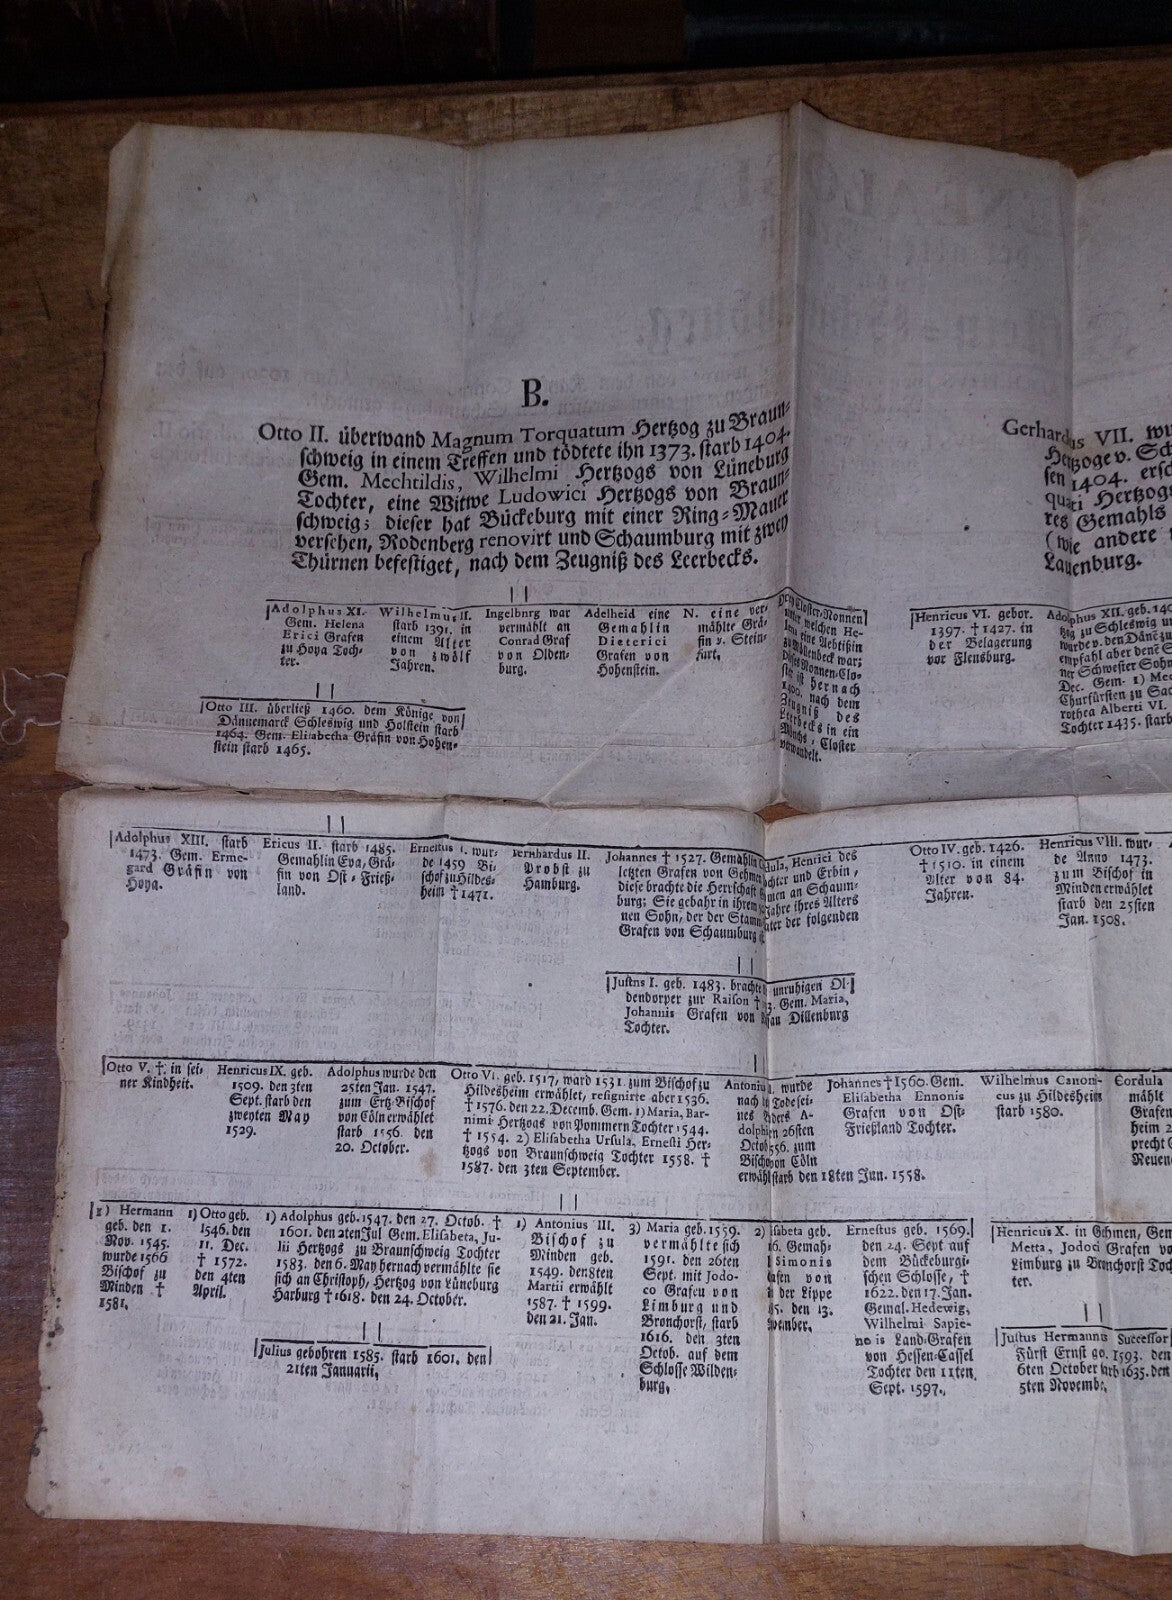 B.
Otto II. überwand Magnum Torquatum Hertzog zu Braun-
schweig in einem Treffen und tödtete ihn 1373. starb 1404.
Gem. Mechtildis, Wilhelmi Hertzogs von Lüneburg
Tochter, eine Witwe Ludowici Hertzogs von Braun-
schweig; dieser hat Bückeburg mit einer Ring-Mauer
versehen, Rodenberg renovirt und Schaumburg mit zwey
Thürnen befestiget, nach dem Zeugniß des Leerbecks.
Gerhardus VII. wu
Hertzoge v. Sch
sen 1404. ersc
quati Hertzogs
res Gemahls
(wie andere
Lauenburg.
Adolphus XI.
Gem. Helena
Erici Grafen
zu Hoya Toch-
ter.
Wilhelmus II.
starb 1391. in
einem Alter
von zwölf
Jahren.
Ingelbnrg war
vermählt an
Conrad Graf
von Olden-
burg.
Adelheid eine
Gemahlin
Dieterici
Grafen von
Hohenstein.
N. eine ver-
mählte Grä-
fin v. Stein-
furt.
Closter-Nonnen
unter welchen He-
lena eine Aebtißin
zu Möllenbeck war;
dieses Nonnen-Clo-
ster ist hernach
1400. nach dem
Zeugniß des
Leerbecks in ein
Mönchs-Closter
verwandelt.
Henricus VI. gebor.
1397. † 1427. in
der Belagerung
vor Flensburg.
Adolphus XII. geb. 140
tzog zu Schleswig un
wurde v. den Dänē zu
empfahl aber denē S
ner Schwester Sohn
Dec. Gem. 1) Mec
Churfürsten zu Sac
rothea Alberti VI.
Tochter 1435. starb
Otto III. überließ 1460. dem Könige von
Dännemarck Schleswig und Holstein starb
1464. Gem. Elisabetha Gräfin von Hohen-
stein starb 1465.
Adolphus XIII. starb
1473. Gem. Erme-
gard Gräfin von
Hoya.
Ericus II. starb 1485.
Gemahlin Eva, Grä-
fin von Ost-Frieß-
land.
Ernestus I. wur-
de 1459 Bi-
schof zu Hildes-
heim † 1471.
Bernhardus II.
Probst zu
Hamburg.
Johannes † 1527. Gemahlin
dula, Henrici des
letzten Grafen von Gehmen
Tochter und Erbin,
diese brachte die Herrschaft
men an Schaum-
burg; Sie gebahr in ihrem
Jahre ihres Alters
nen Sohn, der der Stamm
ater der folgenden
Grafen von Schaumburg
Otto IV. geb. 1426.
† 1510. in einem
Alter von 84.
Jahren.
Henricus VIII. wur-
de Anno 1473.
zum Bischof in
Minden erwählet
starb den 25sten
Jan. 1508.
Justns I. geb. 1483. brachte
unruhigen Ol-
dendorper zur Raison †
3. Gem. Maria,
Johannis Grafen von
sau Dillenburg
Tochter.
Otto V. †. in sei-
ner Kindheit.
Henricus IX. geb.
1509. den 3ten
Sept. starb den
zweyten May
1529.
Adolphus wurde den
25ten Jan. 1547.
zum Ertz-Bischof
von Cöln erwählet
starb 1556. den
20. October.
Otto VI. geb. 1517, ward 1531. zum Bischof zu
Hildesheim erwählet, resignirte aber 1536.
† 1576. den 22. Decemb. Gem. 1) Maria, Bar-
nimi Hertzogs von Pommern Tochter 1544.
† 1554. 2) Elisabetha Ursula, Ernesti Her-
tzogs von Braunschweig Tochter 1558. †
1587. den 3ten September.
Antonius wurde
nach Tode sei-
nes ders A-
dolphi en 26sten
Octob 556. zum
Bischof von Cöln
erwählt starb den 18ten Jun. 1558.
Johannes † 1560. Gem.
Elisabetha Ennonis
Grafen von Ost-
Frießland Tochter.
Wilhelmus Canon-
cus zu Hildesheim
starb 1580.
Cordula
mählt
Grafen
heim 2
precht
Neuen
1) Hermann
geb. den 1.
Nov. 1545.
wurde 1566
Bischof zu
Minden †
1581.
1) Otto geb.
1546. den
11. Dec.
† 1572.
den 4ten
April.
1) Adolphus geb. 1547. den 27. Octob. †
1601. den 2ten Jul Gem. Elisabeta, Ju-
lii Hertzogs zu Braunschweig Tochter
1583. den 6. May hernach vermählte sie
sich an Christoph, Hertzog von Lüneburg
Harburg † 1618. den 24. October.
1) Antonius III.
Bischof zu
Minden geb.
1549. den 8ten
Martii erwählt
1587. † 1599.
den 21. Jan.
3) Maria geb. 1559.
vermählte sich
1591. den 26ten
Sept. mit Jodo-
co Grafen von
Limburg und
Bronchorst, starb
1616. den 3ten
Octob. auf dem
Schlosse Wilden-
burg.
2) lisabeta geb.
6. Gemah-
Simonis
afen von
der Lippe
5. den 13.
vember.
Ernestus geb. 1569.
den 24. Sept auf
dem Bückeburgi-
schen Schlosse, †
1622. den 17. Jan.
Gemal. Hedewig,
Wilhelmi Sapie-
nois Land-Grafen
von Hessen-Cassel
Tochter den 11ten
Sept. 1597.
Henricus X. in Gehmen, Gem
Metta, Jodoci Grafen vo
Limburg zu Bronchorst Toch
ter.
Julius gebohren 1585. starb 1601. den
21ten Januarii.
Justus Hermannus Successor
Fürst Ernst go. 1593. den
6ten October arb 1635. den
5ten Novemb.